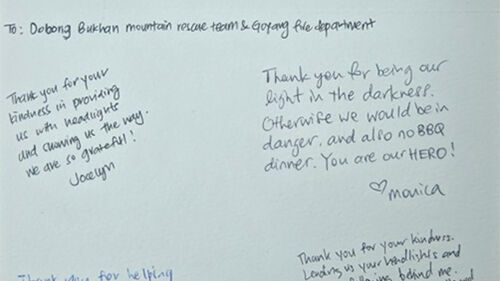 To: Dobong Bukhan mountain rescue team & Goyang fire department
Thank you for your
kindness in providing
us with headlights
and showing us the way.
we are so grateful!
Jocelyn
Thank you for being our
light in the darkness.
Otherwise we would be in
danger, and also no BBQ
dinner. You are our HERO!
♡monica
Thank you for helping
Thank you for your kindness.
Lending us your headlights and
behind me.